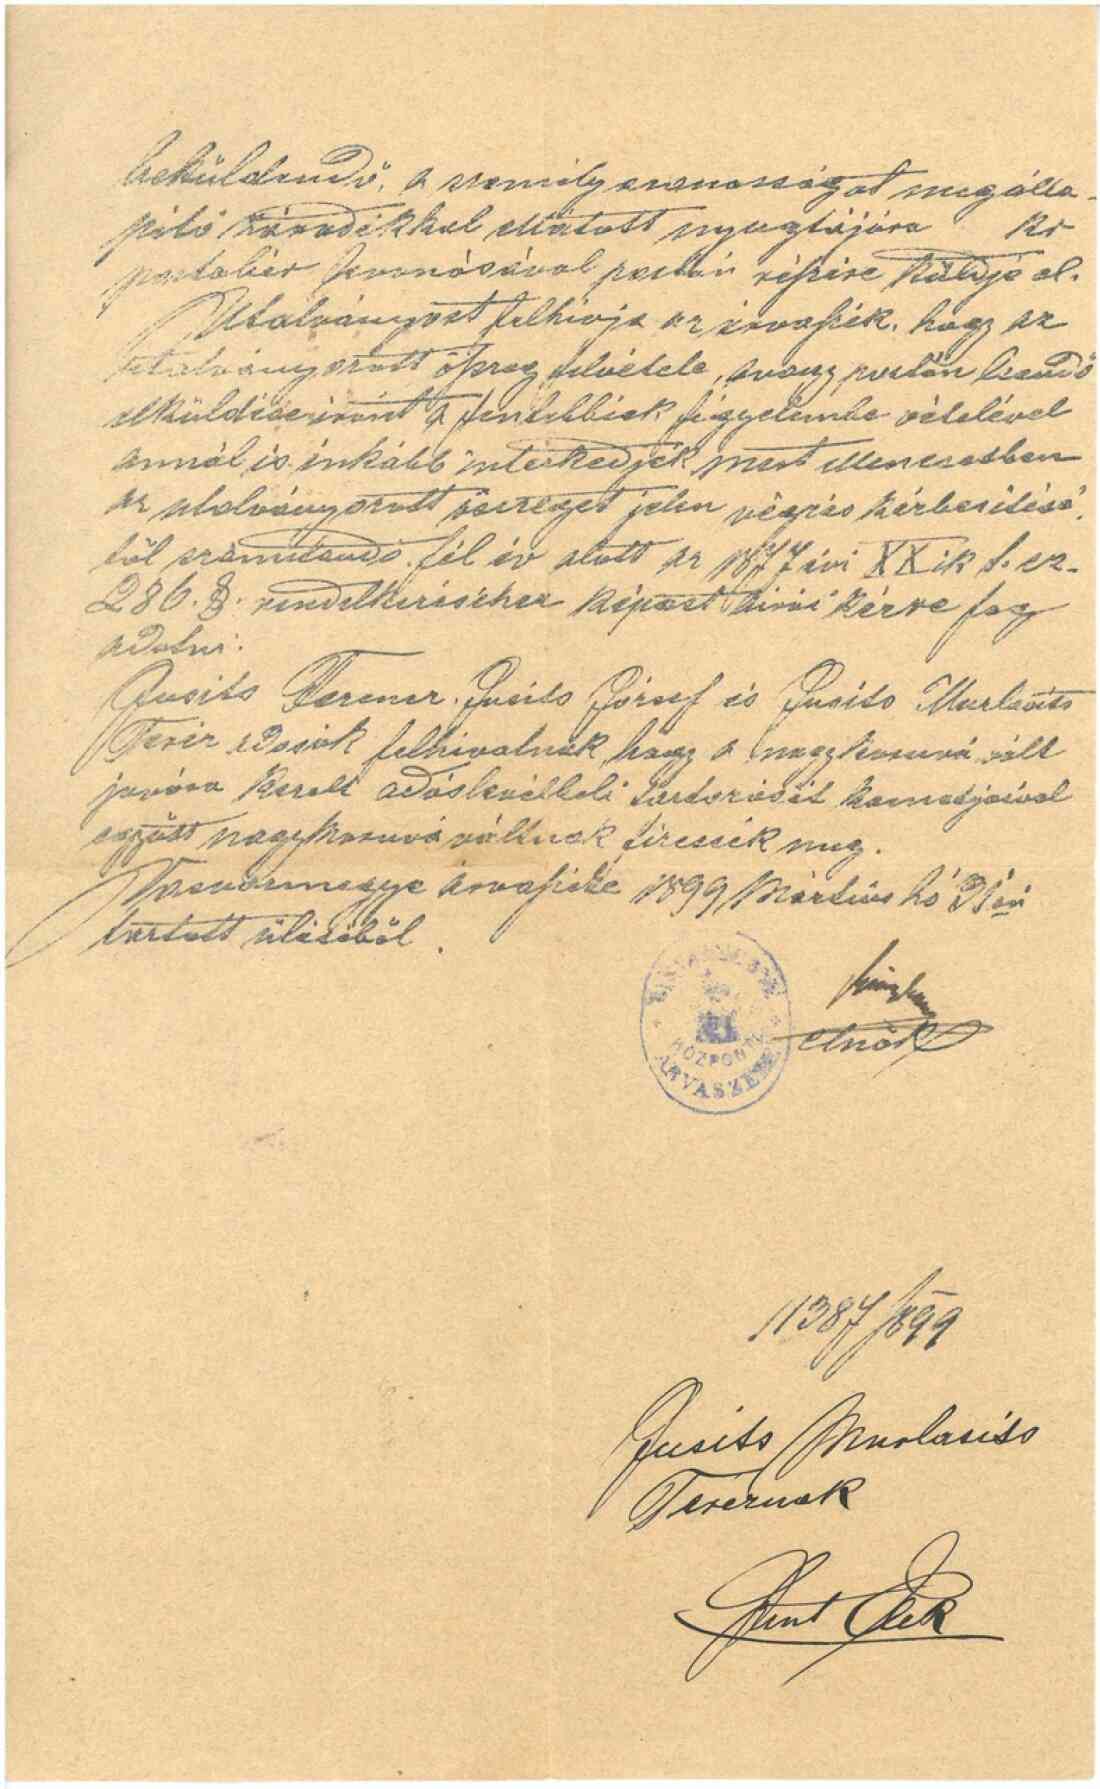 beküldendő, a személyazonosságot megálla-
pitó záradékkal ellátott nyugtájára kr
postabér levonásával postán részére küldje el.
Utalványost felhivja az árvaszék, hogy az
utalványozott öszeg felvétele, avagy postán leendő
elküldése iránt a fentebbiek figyelembe vételével
annál is inkább intézkedjék mert ellenesetben
az utalványozott összeget jelen végzés kézbesitésé-
től számitandó fél év alatt az 1877 évi XXik t. cz.
286. §. rendelkezéséhez képest birói kézre fog
adatni.
Jusits Ferencz, Jusits József és Jusits Murlasits
Teréz adósok felhivatnak, hogy a nagykoruvá vált
javára kezelt adóslevélbeli tartozását kamatjaival
együtt nagykoruvá váltnak fizessék meg.
Vasvármegye árvaszéke 1899 Március hó 21én
tartott üléséből.
KÖZPONTI
ÁRVASZÉK
elnök
11387/899
Jusits Murlasits
Teréznek